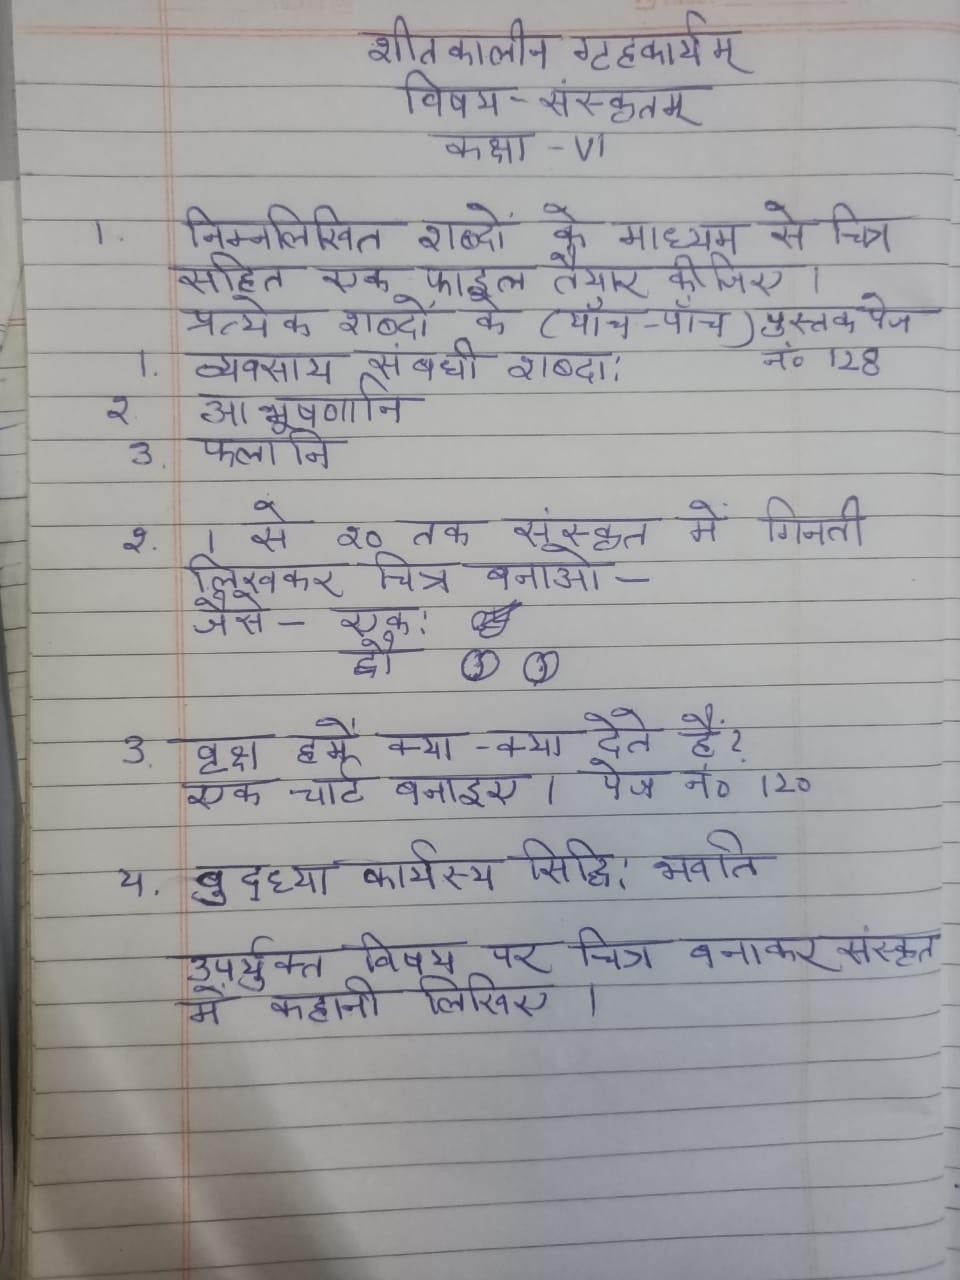 शीतकालीन गृहकार्यम्
विषय - संस्कृतम्
कक्षा - VI
1. निम्नलिखित शब्दों के माध्यम से चित्र
सहित एक फ़ाइल तैयार कीजिए ।
प्रत्येक शब्दों के (पाँच-पाँच) पुस्तक पेज
1. व्यवसाय संबधी शब्दा: नं० 128
२. आभूषणानि
3. फलानि
२. 1 से २० तक संस्कृत में गिनती
लिखकर चित्र बनाओ -
जैसे - एक:
दो
3. वृक्ष हमें क्या -क्या देते हैं?
एक चार्ट बनाइए । पेज नं० 120
4. बुद्ध्या कार्यस्य सिद्धि: भवति
उपर्युक्त विषय पर चित्र बनाकर संस्कृत
में कहानी लिखिए ।